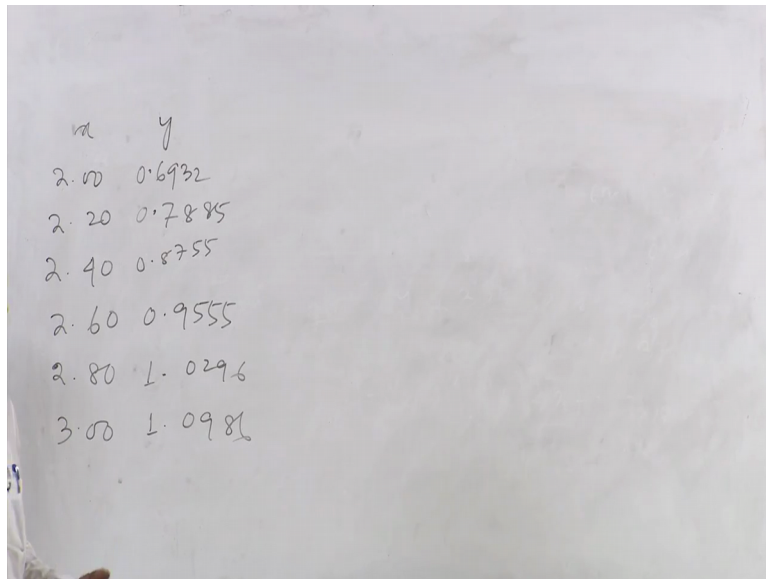 x y
2.00 0.6932
2.20 0.7885
2.40 0.8755
2.60 0.9555
2.80 1.0296
3.00 1.0986